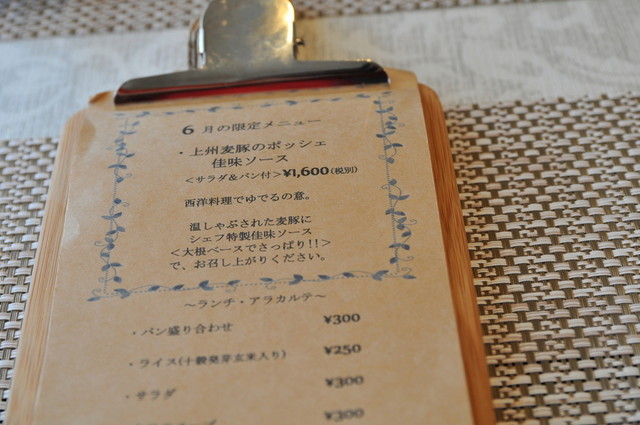 6月の限定メニュー
・上州麦豚のポッシェ
佳味ソース
<サラダ&パン付>¥1,600(税別)
西洋料理でゆでるの意。
温しゃぶされた麦豚に
シェフ特製佳味ソース
<大根ベースでさっぱり!!>
で、お召し上がりください。
～ランチ・アラカルテ～
・パン盛り合わせ ¥300
・ライス(十穀発芽玄米入り) ¥250
・サラダ ¥300
¥300